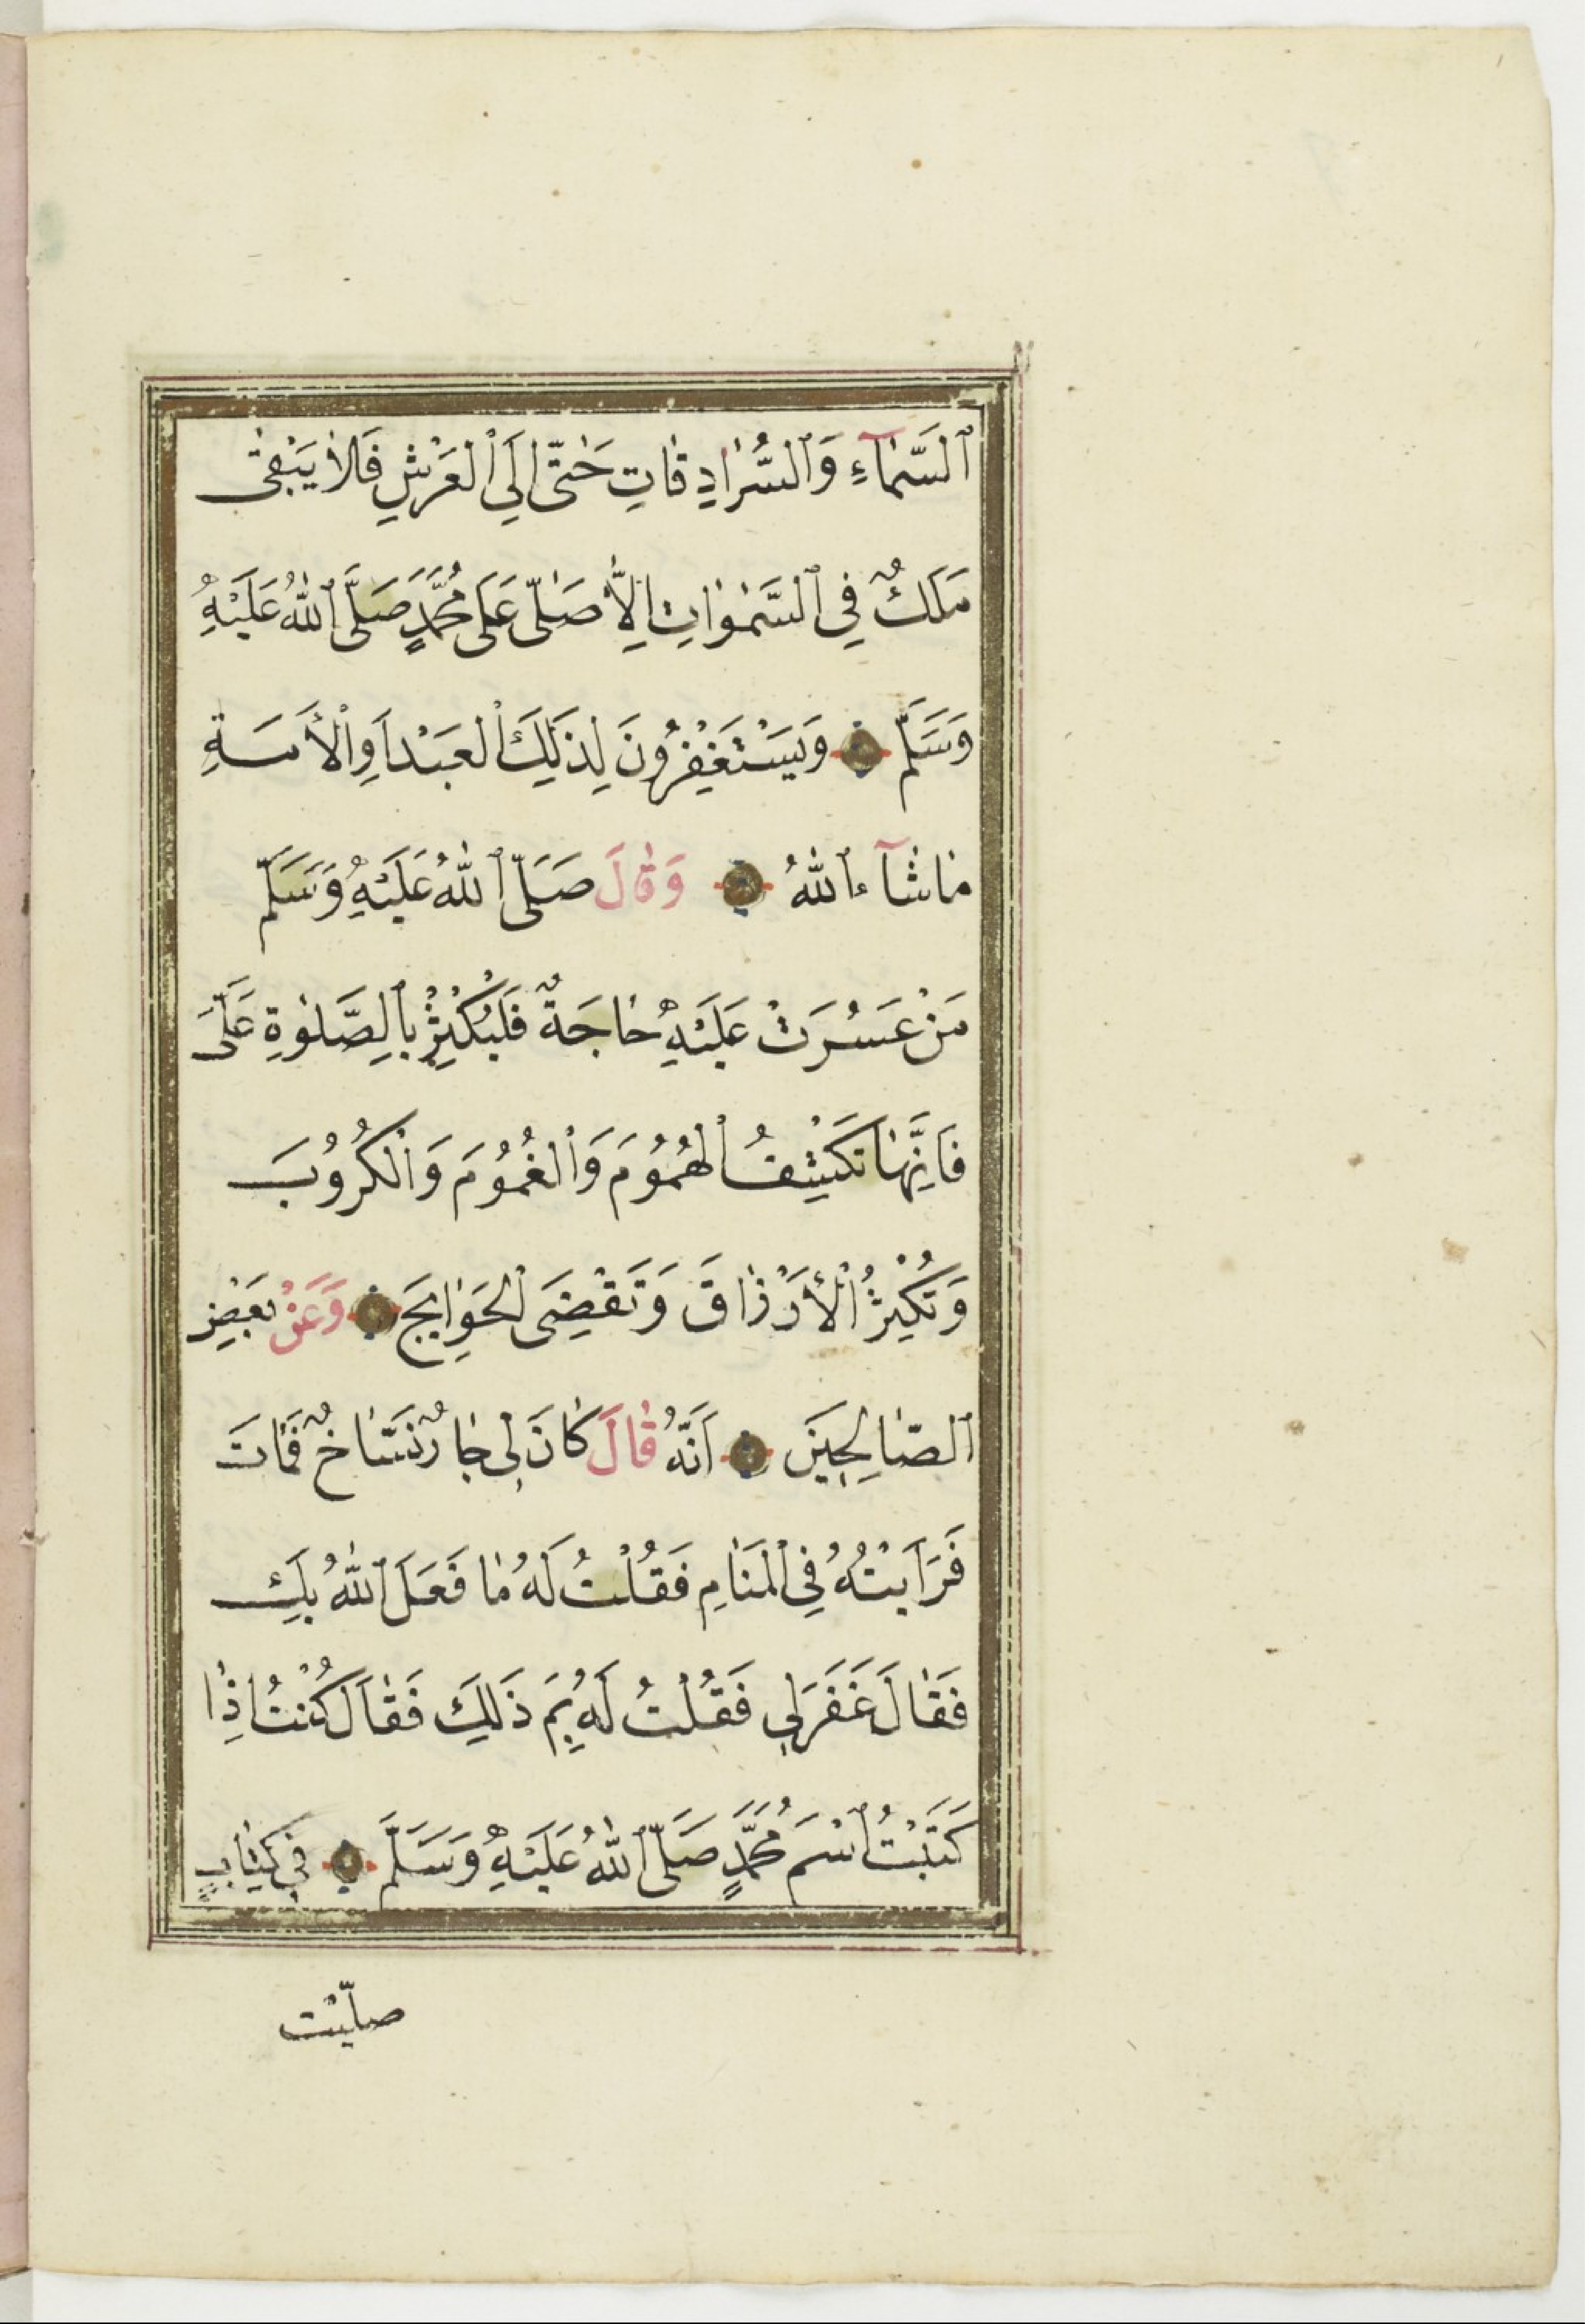 ٱلسَّمَآءِ وَٱلسُّرَادِقَاتِ حَتّٰى اِلَى ٱلْعَرْشِ فَلَا يَبْقٰى
مَلَكٌ فِي ٱلسَّمٰوَاتِ اِلَّا صَلّٰى عَلَى مُحَمَّدٍ صَلَّى ٱللّٰهُ عَلَيْهِ
وَسَلَّمَ وَيَسْتَغْفِرُونَ لِذٰلِكَ الْعَبْدِ اَوِ الْأَمَةِ
مَاشَآءَ ٱللّٰهُ وَقَالَ صَلَّى ٱللّٰهُ عَلَيْهِ وَسَلَّمَ
مَنْ عَسُرَتْ عَلَيْهِ حَاجَةٌ فَلْيُكْثِرْ بِٱلصَّلٰوةِ عَلَىَّ
فَاِنَّهَا تَكْشِفُ الْهُمُومَ وَالْغُمُومَ وَالْكُرُوبَ
وَتُكْثِرُ الْأَرْزَاقَ وَتَقْضِى الْحَوَايِجَ وَعَنْ بَعْضِ
ٱلصَّالِحِينَ اَنَّهُ قَالَ كَانَ لِى جَارٌ نَسَّاخٌ فَمَاتَ
فَرَاَيْتُهُ فِى الْمَنَامِ فَقُلْتُ لَهُ مَا فَعَلَ ٱللّٰهُ بِكَ
فَقَالَ غَفَرَلِى فَقُلْتُ لَهُ بِمَ ذٰلِكَ فَقَالَ كُنْتُ اِذَا
كَتَبْتُ ٱسْمَ مُحَمَّدٍ صَلَّى ٱللّٰهُ عَلَيْهِ وَسَلَّمَ فِى كِتَابٍ
صلّيْت